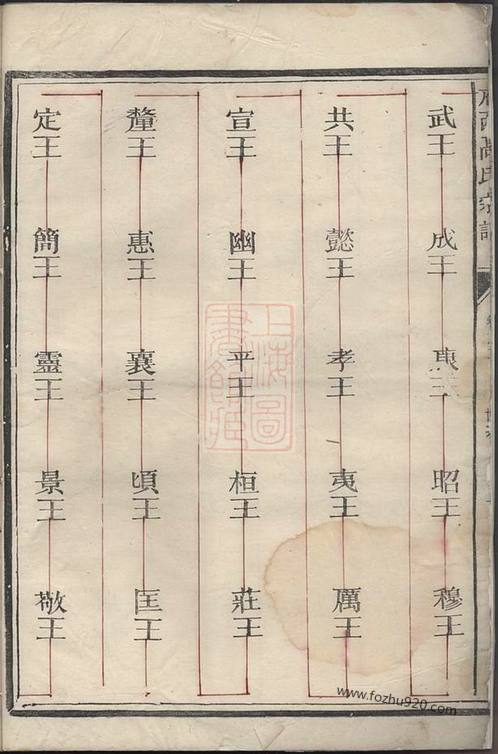 武王 成王 康王 昭王 穆王
共王 懿王 孝王 夷王 厲王
宣王 幽王 平王 桓王 莊王
釐王 惠王 襄王 頃王 匡王
定王 簡王 靈王 景王 敬王
上海圖書館藏
高氏宗譜
www.fozhu920.com